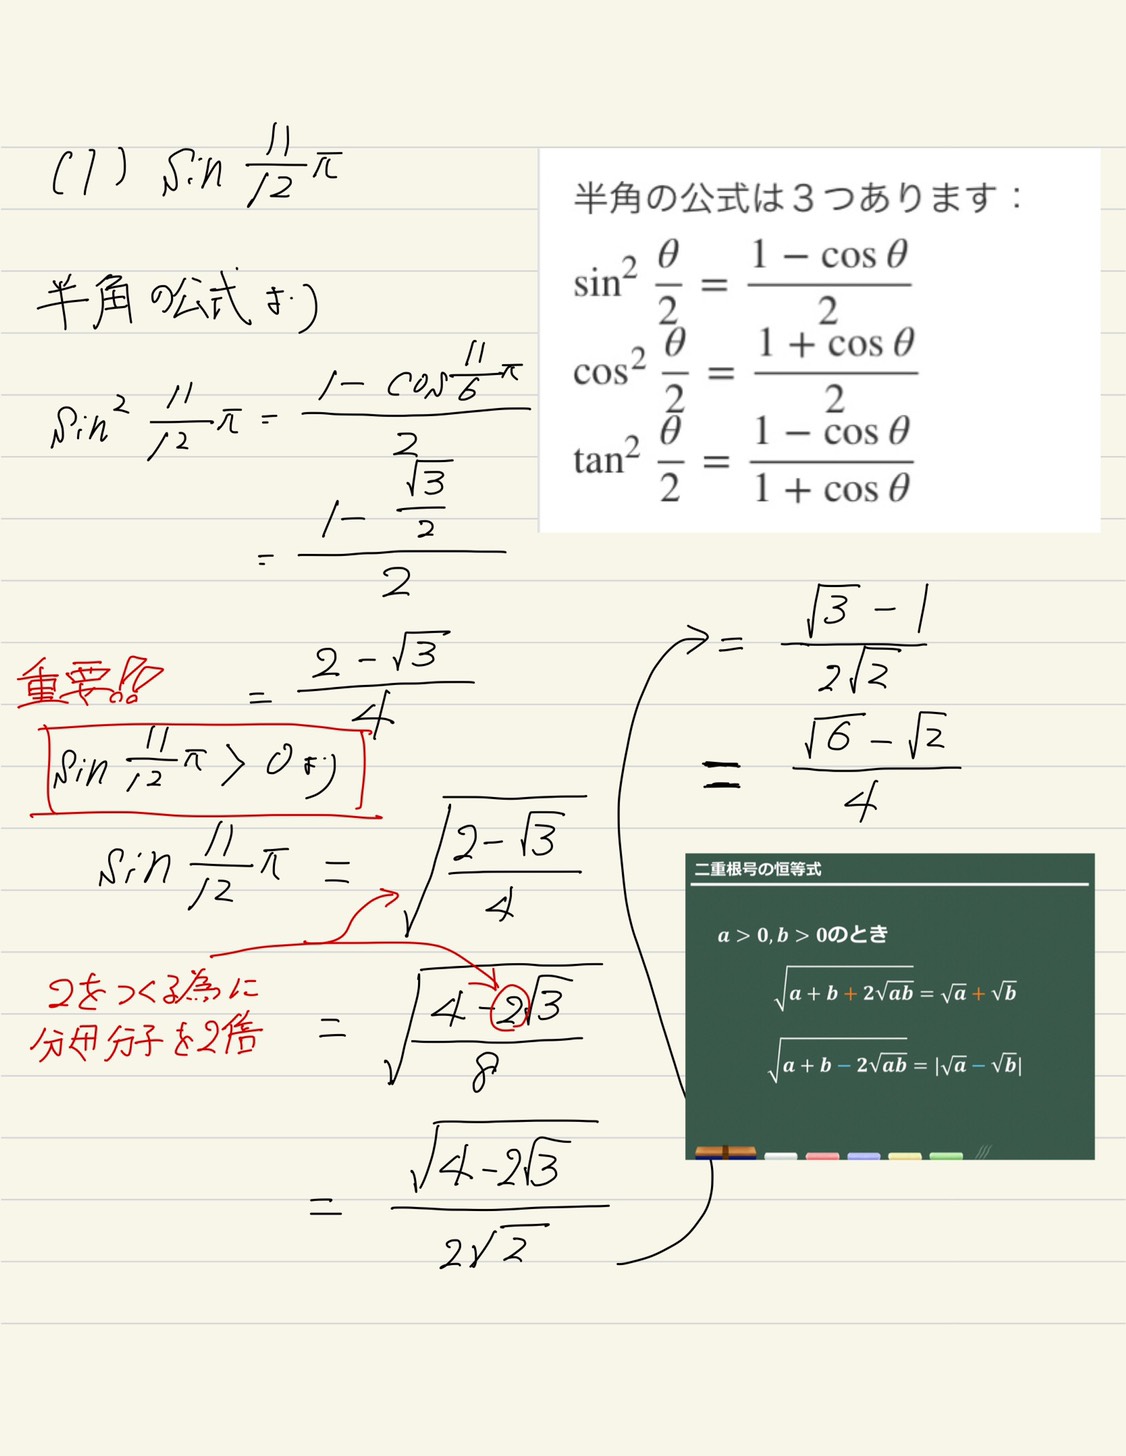 (1) sin 11/12 π
半角の公式より
sin² 11/12 π = (1 - cos 11/6 π)/2
= (1 - √3/2)/2
= (2 - √3)/4
重要!!
sin 11/12 π > 0 より
sin 11/12 π = √((2 - √3)/4)
2をつくる為に
分母分子を2倍
= √((4 - 2√3)/8)
= √(4 - 2√3)/(2√2)
半角の公式は３つあります：
sin² θ/2 = (1 − cos θ)/2
cos² θ/2 = (1 + cos θ)/2
tan² θ/2 = (1 − cos θ)/(1 + cos θ)
= (√3 - 1)/(2√2)
= (√6 - √2)/4
二重根号の恒等式
a > 0, b > 0のとき
√(a + b + 2√ab) = √a + √b
√(a + b − 2√ab) = |√a − √b|